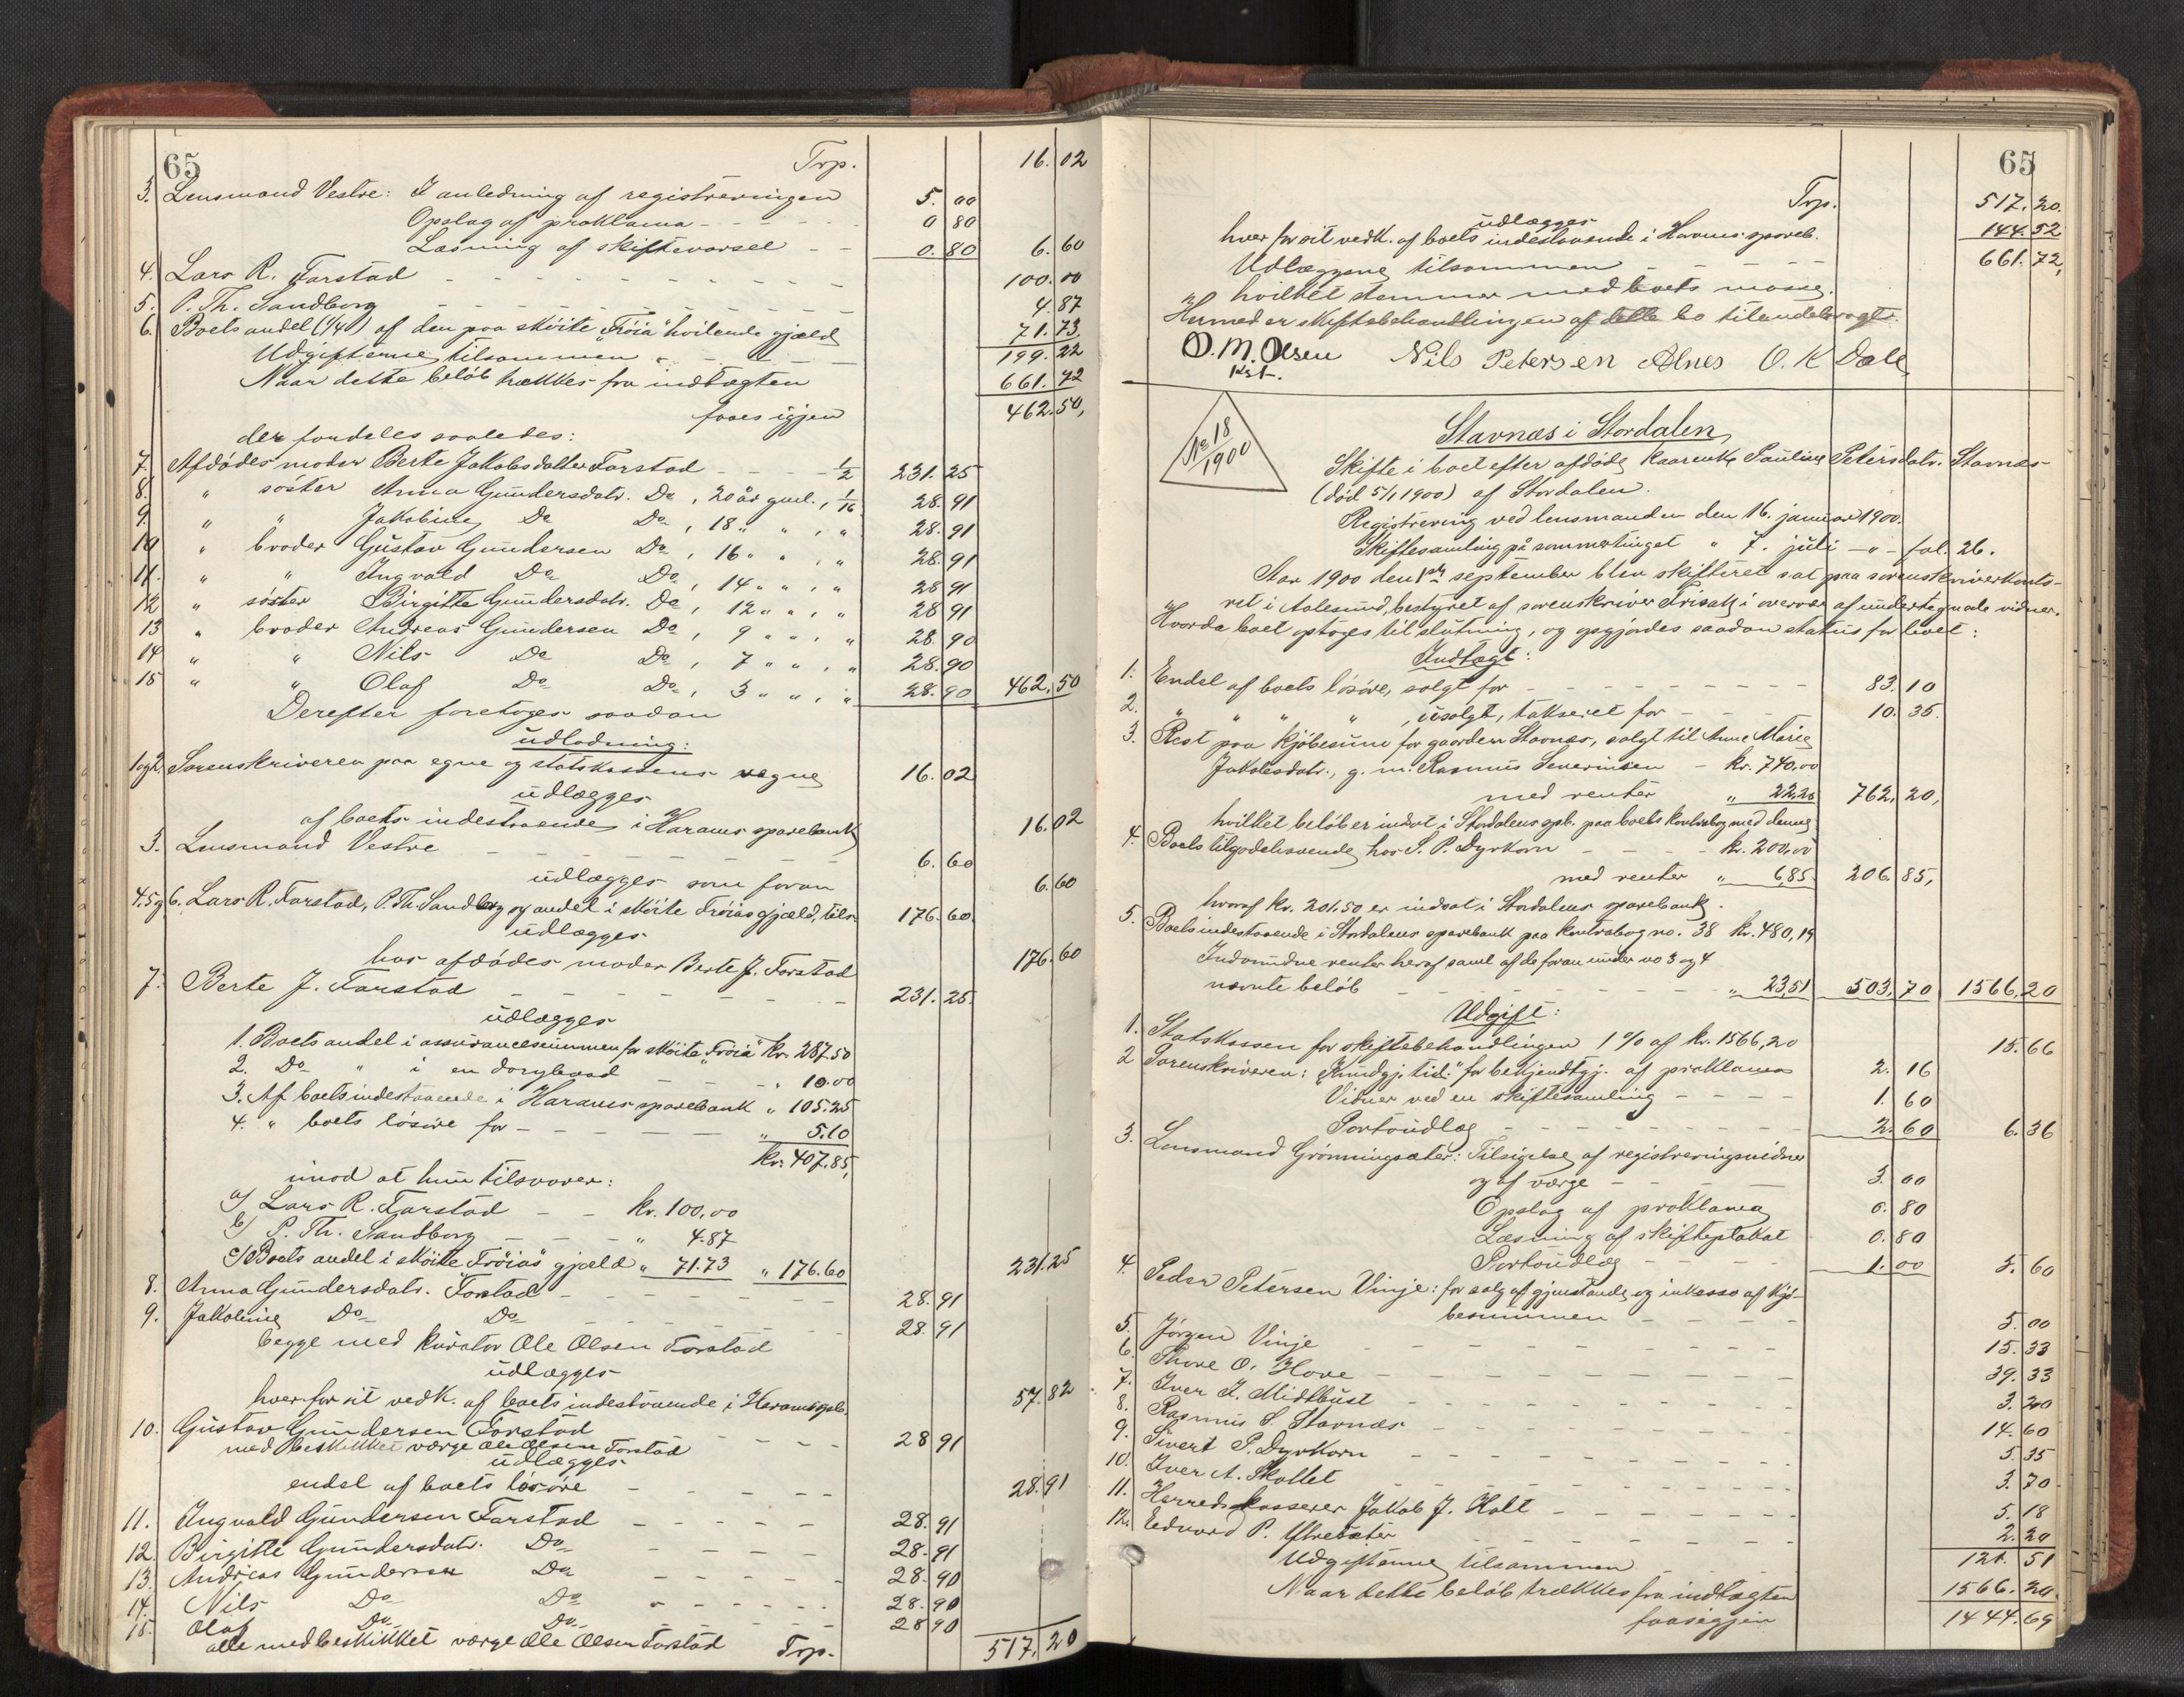 65
Trp. 16.02
3. Lensmand Vestre: I anledning af registreringen 5.00
Opslag af proklama - - - 0 80
Læsning af skiftevarsel - - 0.80 6.60
4. Lars R. Farstad - - - 100.00
5. P. Th. Sandborg - - - 4.87
6. Boets andel (1/4) af den paa skøite "Frøia" hvilende gjæld 71.73
Udgifterne tilsammen - - 199.22
Naar dette beløb trækkes fra indtægten 661.72
faaes igjen 462.50,
der fordeles saaledes:
7. Afdødes moder Berte Jakobsdatter Farstad - - - 1/2 231.25
8. " søster Anna Gundersdatr. Do, 20 år gml., 1/16 28.91
9. " " Jakobine Do Do, 18 " " , " 28.91
10 " broder Gustav Gundersen Do, 16 " " , " 28.91
11. " " Ingvald Do Do, 14 " " , " 28 91
12 " søster Birgitte Gundersdatr. Do, 12 " " , " 28 91
13 " broder Andreas Gundersen Do, 9 " " , " 28.90
14 " " Nils Do Do, 7 " " , " 28.90
15 " " Olaf Do Do, 3 " " , " 28.90 462.50
Derefter foretoges saadan
udlodning:
1og2. Sorenskriveren paa egne og statskassens vegne 16.02
udlægges
af boets indestaaende i Harams sparebank 16.02
3. Lensmand Vestre - - - 6.60
udlægges som foran 6.60
4.5og6. Lars R. Farstad, P. Th. Sandborg og andel i skøite Frøias gjæld, tils. 176.60
udlægges
hos afdødes moder Berte J. Farstad 176.60
7. Berte J. Farstad - - - 231.25
udlægges
1. Boets andel i assurancesummen for skøite "Frøia" kr. 287.50
2. Do " i en dorybaad - - - " 10.00
3. Af boets indestaaende i Harams sparebank " 105.25
4. " boets løsøre for - - - " 5.10
kr. 407.85,
imod at hun tilsvarer:
a) Lars R. Farstad - - kr. 100,00
b) P. Th. Sandborg - - - " 4.87
c) Boets andel i skøite "Frøias" gjæld " 71.73 " 176.60 231.25
8. Anna Gundersdatr. Farstad - - - 28.91
9. Jakobine Do Do - - - 28.91
begge med kurator Ole Olsen Farstad
udlægges
hver for sit vedk. af boets indestaaende i Harams spb. 57.82
10. Gustav Gundersen Farstad - - - 28 91
med beskikket værge Ole Olsen Farstad
udlægges
endel af boets løsøre - - - 28.91
11. Ingvald Gundersen Farstad - - - 28.91
12. Birgitte Gundersdatr. Do - - - 28.91
13. Andreas Gundersen Do - - - 28.90
14. Nils Do Do - - - 28.90
15. Olaf Do Do 28 90
alle med beskikket værge Ole Olsen Farstad Trp. 517.20
65
Trp. 517.20.
udlægges
hver for sit vedk. af boets indestaaende i Harams spareb. 144.52
Udlæggene tilsammen - - - 661.72,
hvilket stemmer med boets masse.
Hermed er skiftebehandlingen af dette bo tilendebragt.
O. M. Olsen Nils Petersen Alnes O. K Dale
kst.
No 18/1900
Stavnæs i Stordalen,
Skifte i boet efter afdøde kaarenke Pauline Petersdatr. Stavnæs
(død 5/1 1900) af Stordalen.
Registrering ved lensmanden den 16. januar 1900.
Skiftesamling på sommertinget " 7. juli - " - fol. 26.
Aar 1900 den 1ste september blev skifteret sat paa sorenskriverkonto-
ret i Aalesund, bestyret af sorenskriver Frisak i overvær af undertegnede vidner.
Hvorda boet optoges til slutning, og opgjordes saadan status for boet:
Indtægt:
1. Endel af boets løsøre, solgt for - - - 83.10
2. " " " " , usolgt, takseret for - - - 10.35.
3. Rest paa kjøbesum for gaarden Stavnæs, solgt til Anne Marie
Jakobsdatr., g. m. Rasmus Severinsen - kr. 740,00
med renter " 22,20 762,20,
hvilket beløb er indsat i Stordalens spb. paa boets kontrabog med denne
4. Boets tilgodehavende hos S. P. Dyrkorn - - - kr. 200,00
med renter " 6,85 206.85,
hvoraf kr. 201.50 er indsat i Stordalens sparebank.
5. Boets indestaaende i Stordalens sparebank paa kontrabog no. 38 kr. 480,19
Indvundne renter heraf samt af de foran under no 3 og 4
nævnte beløb - - - " 23,51 503,70 1566,20
Udgift:
1. Statskassen for skiftebehandlingen 1 % af kr. 1566,20 15.66
2 Sorenskriveren: "Kundgj. tid." for bekjendtgj. af proklama 2.16
Vidner ved en skiftesamling - - - 1.60
Portoudlæg - - - 2.60 6.36
3. Lensmand Grønningsæter: Tilsigelse af registreringsvidner
og af værge - - - 3.00
Opslag af proklama 0.80
Læsning af skifteplakat 0.80
Portoudlæg - - - 1.00 5.60
4. Peder Petersen Vinje: for salg af gjenstande og inkasso af kjø-
besummen - - - 5.00
5. Jørgen Vinje - - - 15.33
6. Thore O. Hove - - - 39.33
7. Iver I. Midtbust - - - 3.20
8. Rasmus S. Stavnæs - - - 14.60
9. Sivert P. Dyrkorn - - - 5.35
10. Iver A. Skottet - - - 3.70
11. Herredskasserer Jakob J. Holt - - - 5.18
12. Edvard P. Ytresæter - - - 2.20
Udgifterne tilsammen 121.51
Naar dette beløb trækkes fra indtægten 1566.20.
faaes igjen 1444.69